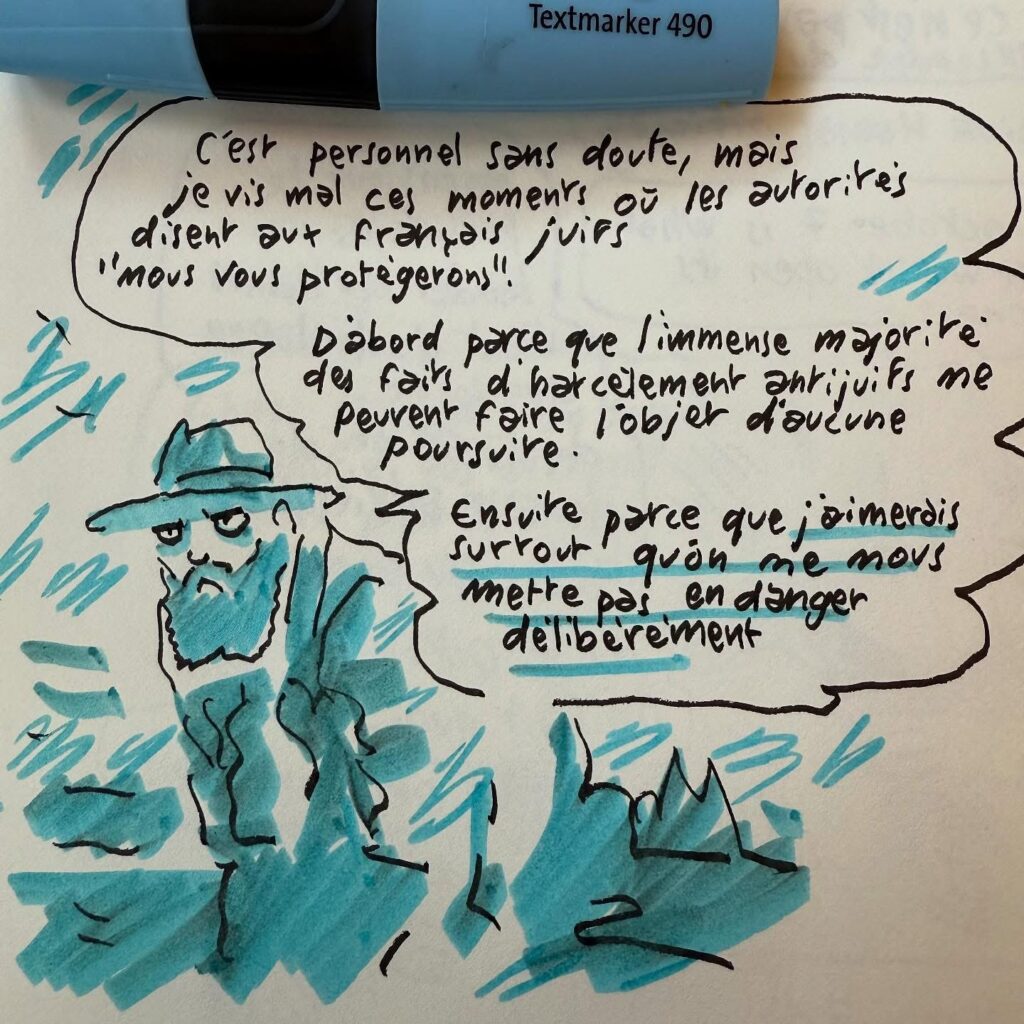 Textmarker 490
C'est personnel sans doute, mais
je vis mal ces moments où les autorités
disent aux français juifs
"nous vous protégerons".
D'abord parce que l'immense majorité
des faits d'harcèlement antijuifs ne
peuvent faire l'objet d'aucune
poursuite.
Ensuite parce que j'aimerais
surtout qu'on ne nous
mette pas en danger
délibérément